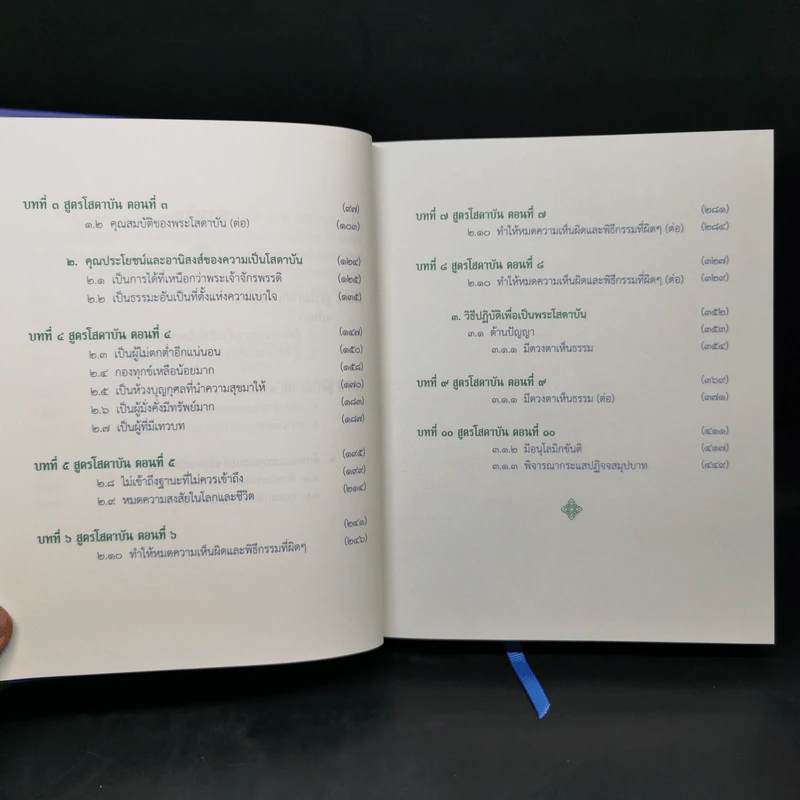 บทที่ ๓ สูตรโสดาบัน ตอนที่ ๓ (๙๗)
๑.๒ คุณสมบัติของพระโสดาบัน (ต่อ) (๑๐๓)
๒. คุณประโยชน์และอานิสงส์ของความเป็นโสดาบัน (๑๒๔)
๒.๑ เป็นการได้ที่เหนือกว่าพระเจ้าจักรพรรดิ (๑๒๕)
๒.๒ เป็นธรรมะอันเป็นที่ตั้งแห่งความเบาใจ (๑๓๕)
บทที่ ๔ สูตรโสดาบัน ตอนที่ ๔ (๑๔๗)
๒.๓ เป็นผู้ไม่ตกต่ำอีกแน่นอน (๑๕๐)
๒.๔ กองทุกข์เหลือน้อยมาก (๑๕๘)
๒.๕ เป็นห้วงบุญกุศลที่นำความสุขมาให้ (๑๗๐)
๒.๖ เป็นผู้มั่งคั่งมีทรัพย์มาก (๑๘๓)
๒.๗ เป็นผู้ที่มีเทวบท (๑๘๗)
บทที่ ๕ สูตรโสดาบัน ตอนที่ ๕ (๑๙๕)
๒.๘ ไม่เข้าถึงฐานะที่ไม่ควรเข้าถึง (๑๙๙)
๒.๙ หมดความสงสัยในโลกและชีวิต (๒๑๔)
บทที่ ๖ สูตรโสดาบัน ตอนที่ ๖ (๒๔๑)
๒.๑๐ ทำให้หมดความเห็นผิดและพิธีกรรมที่ผิดๆ (๒๔๖)
บทที่ ๗ สูตรโสดาบัน ตอนที่ ๗ (๒๘๑)
๒.๑๐ ทำให้หมดความเห็นผิดและพิธีกรรมที่ผิดๆ (ต่อ) (๒๘๔)
บทที่ ๘ สูตรโสดาบัน ตอนที่ ๘ (๓๒๗)
๒.๑๐ ทำให้หมดความเห็นผิดและพิธีกรรมที่ผิดๆ (ต่อ) (๓๒๙)
๓. วิธีปฏิบัติเพื่อเป็นพระโสดาบัน (๓๕๒)
๓.๑ ด้านปัญญา (๓๕๓)
๓.๑.๑ มีดวงตาเห็นธรรม (๓๕๔)
บทที่ ๙ สูตรโสดาบัน ตอนที่ ๙ (๓๖๙)
๓.๑.๑ มีดวงตาเห็นธรรม (ต่อ) (๓๗๑)
บทที่ ๑๐ สูตรโสดาบัน ตอนที่ ๑๐ (๔๑๑)
๓.๑.๒ มีอนุโลมิกขันติ (๔๑๗)
๓.๑.๓ พิจารณากระแสปฏิจจสมุปบาท (๔๔๙)